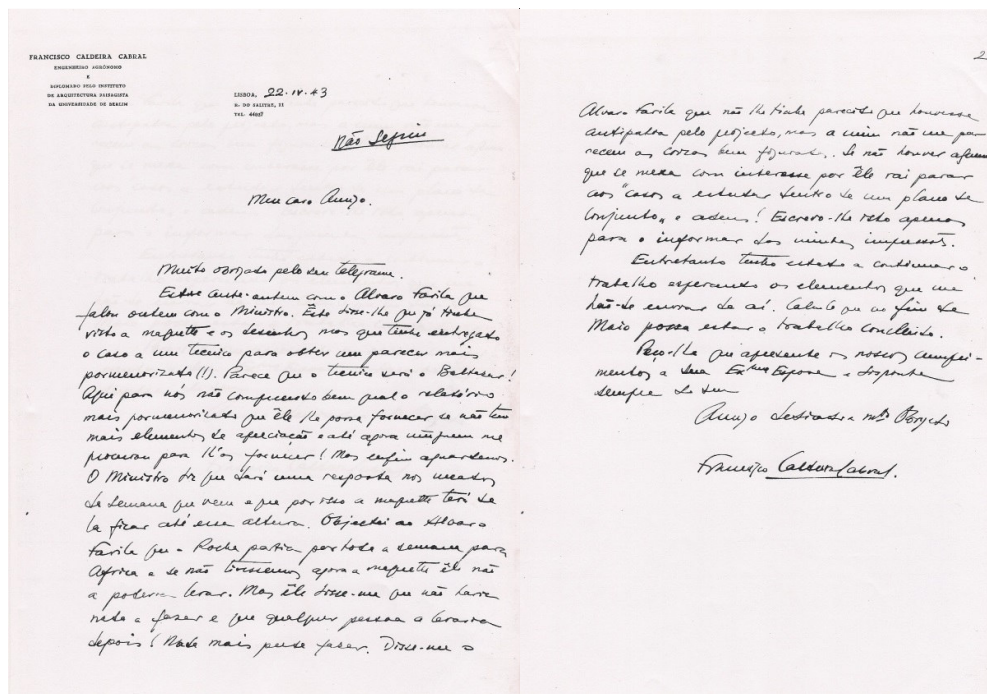 FRANCISCO CALDEIRA CABRAL
ENGENHEIRO AGRÓNOMO
E
DIPLOMADO PELO INSTITUTO
DE ARQUITECTURA PAISAGISTA
DA UNIVERSIDADE DE BERLIM
LISBOA, 22-IV-43
R. DO SALITRE, 11
TEL.
Não
Meu caro Amigo.
Muito obrigado pelo seu telegrama.
Estive ante-ontem com o Alvaro Farila que
falou ontem com o Ministro. Este disse-lhe que já tinha
visto a maquette e os desenhos mas que tinha entregado
o caso a um tecnico para obter um parecer mais
pormenorizado (!). Parece que o tecnico será o Baltasar!
Aqui para nós não compreendo bem qual o relatório
mais pormenorizado que êle lhe possa fornecer se não tem
mais elementos de apreciação e até agora ninguem me
procurou para lh'os fornecer! Mas enfim aguardemos.
O Ministro diz que dará uma resposta nos meados
da semana que vem e que por isso a maquette terá de
lá ficar até essa altura. Objectei ao Alvaro
Farila que o Rocha partia por toda a semana para
Africa e se não tivessemos agora a maquette êle não
a poderia levar. Mas êle disse-me que não havia
nada a fazer e que qualquer pessoa a levaria
depois! Nada mais pude fazer. Disse-me o
2
Alvaro Farila que não lhe tinha parecido que houvesse
antipatia pelo projecto, mas a mim não me pa-
recem as coisas bem figuradas. Se não houver alguem
que se mexa com interesse por êle vai parar
aos "casos a estudar dentro de um plano de
conjunto" e adeus! Escrevo-lhe isto apenas
para o informar das minhas impressões.
Entretanto tenho estado a continuar o
trabalho esperando os elementos que me
hão-de enviar de aí. Calculo que no fim de
Maio possa estar o trabalho concluido.
Peço-lhe que apresente os nossos cumpri-
mentos a sua Exma Esposa e disponha
sempre do seu
Amigo dedicado e mto Obrigado
Francisco Caldeira Cabral.